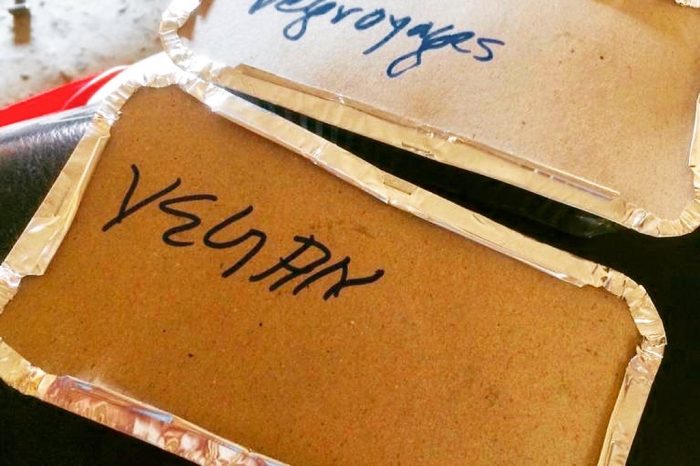 Vegevoyages
VEGAN